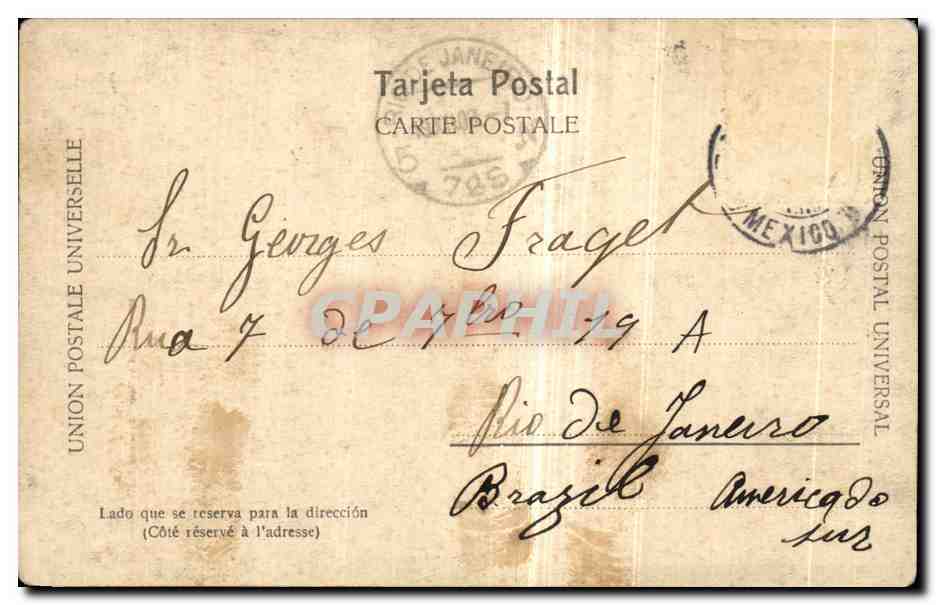 Tarjeta Postal
CARTE POSTALE
RIO DE JANEIRO
5
725
MEXICO
UNION POSTALE UNIVERSELLE
UNION POSTAL UNIVERSAL
Sr Georges Fraget
Rua 7 de 7bro 79 A
CPAPHIL
Rio de Janeiro
Brazil America do
sur
Lado que se reserva para la dirección
(Côté réservé à l'adresse)